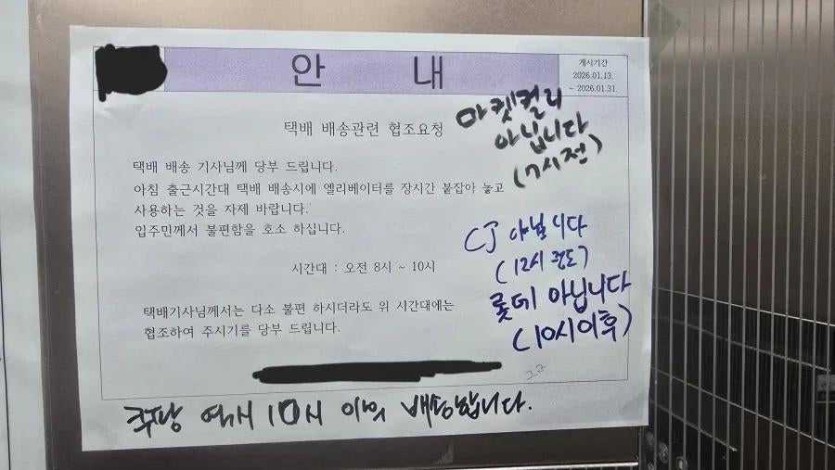 안 내
게시기간
2026.01.13.
~ 2026.01.31.
택배 배송관련 협조요청
마켓컬리
아닙니다
(7시전)
택배 배송 기사님께 당부 드립니다.
아침 출근시간대 택배 배송시에 엘리베이터를 장시간 붙잡아 놓고
사용하는 것을 자제 바랍니다.
입주민께서 불편함을 호소 하십니다.
시간대 : 오전 8시 ~ 10시
택배기사님께서는 다소 불편 하시더라도 위 시간대에는
협조하여 주시기를 당부 드립니다.
CJ 아닙니다
(12시 정도)
롯데 아닙니다
(10시이후)
쿠팡 역시 10시 이후 배송합니다.